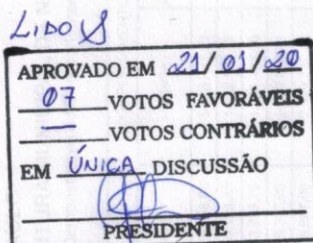 LIDO
APROVADO EM 21/01/20
07 VOTOS FAVORÁVEIS
— VOTOS CONTRÁRIOS
EM ÚNICA DISCUSSÃO
PRESIDENTE